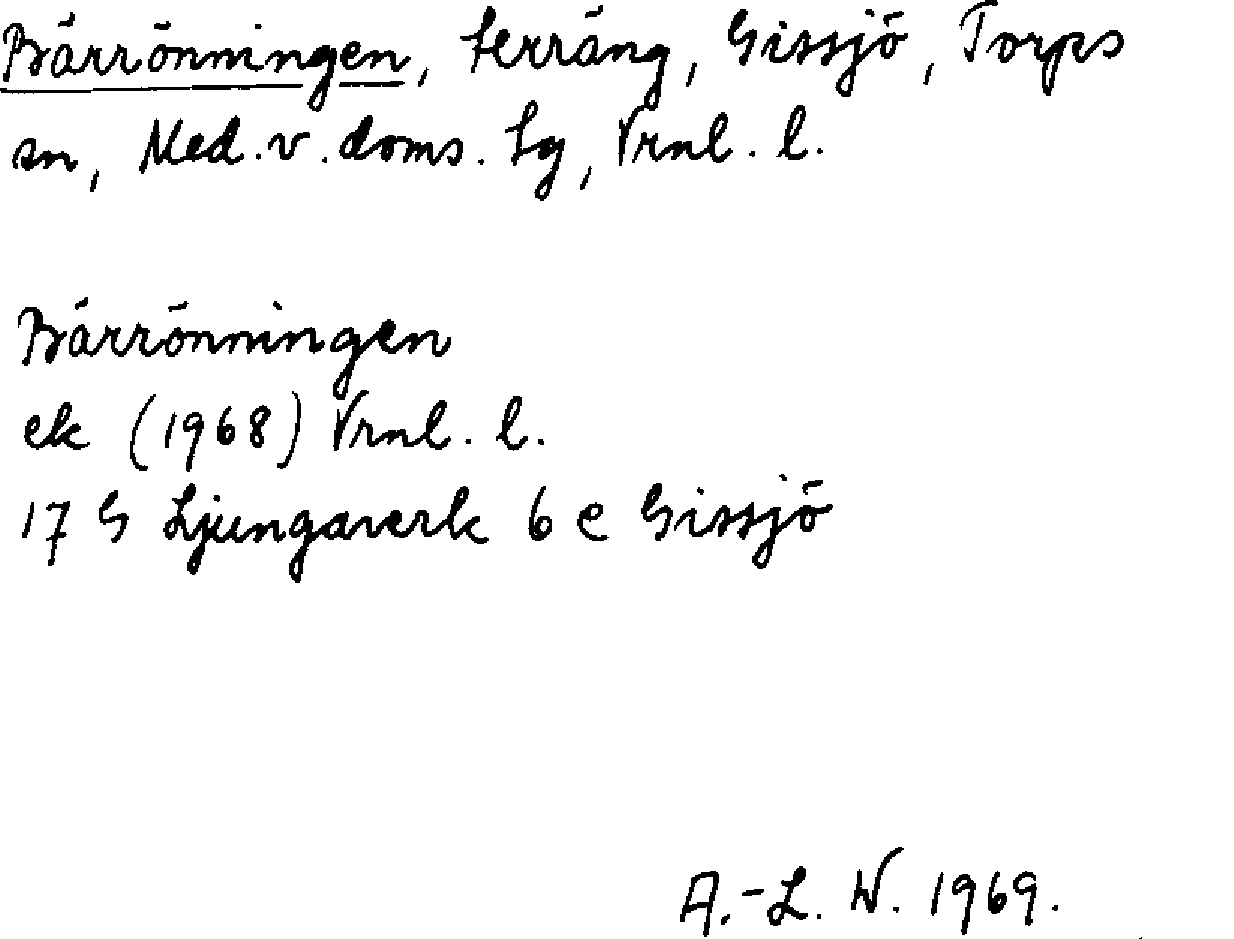 Bärrönningen, terräng, Gissjö, Torps
sn, Med. v. doms. lg, Vrnl. l.
Bärrönningen
ek (1968) Vrnl. l.
17 G Ljungaverk 6 e Gissjö
A.-L. W. 1969.